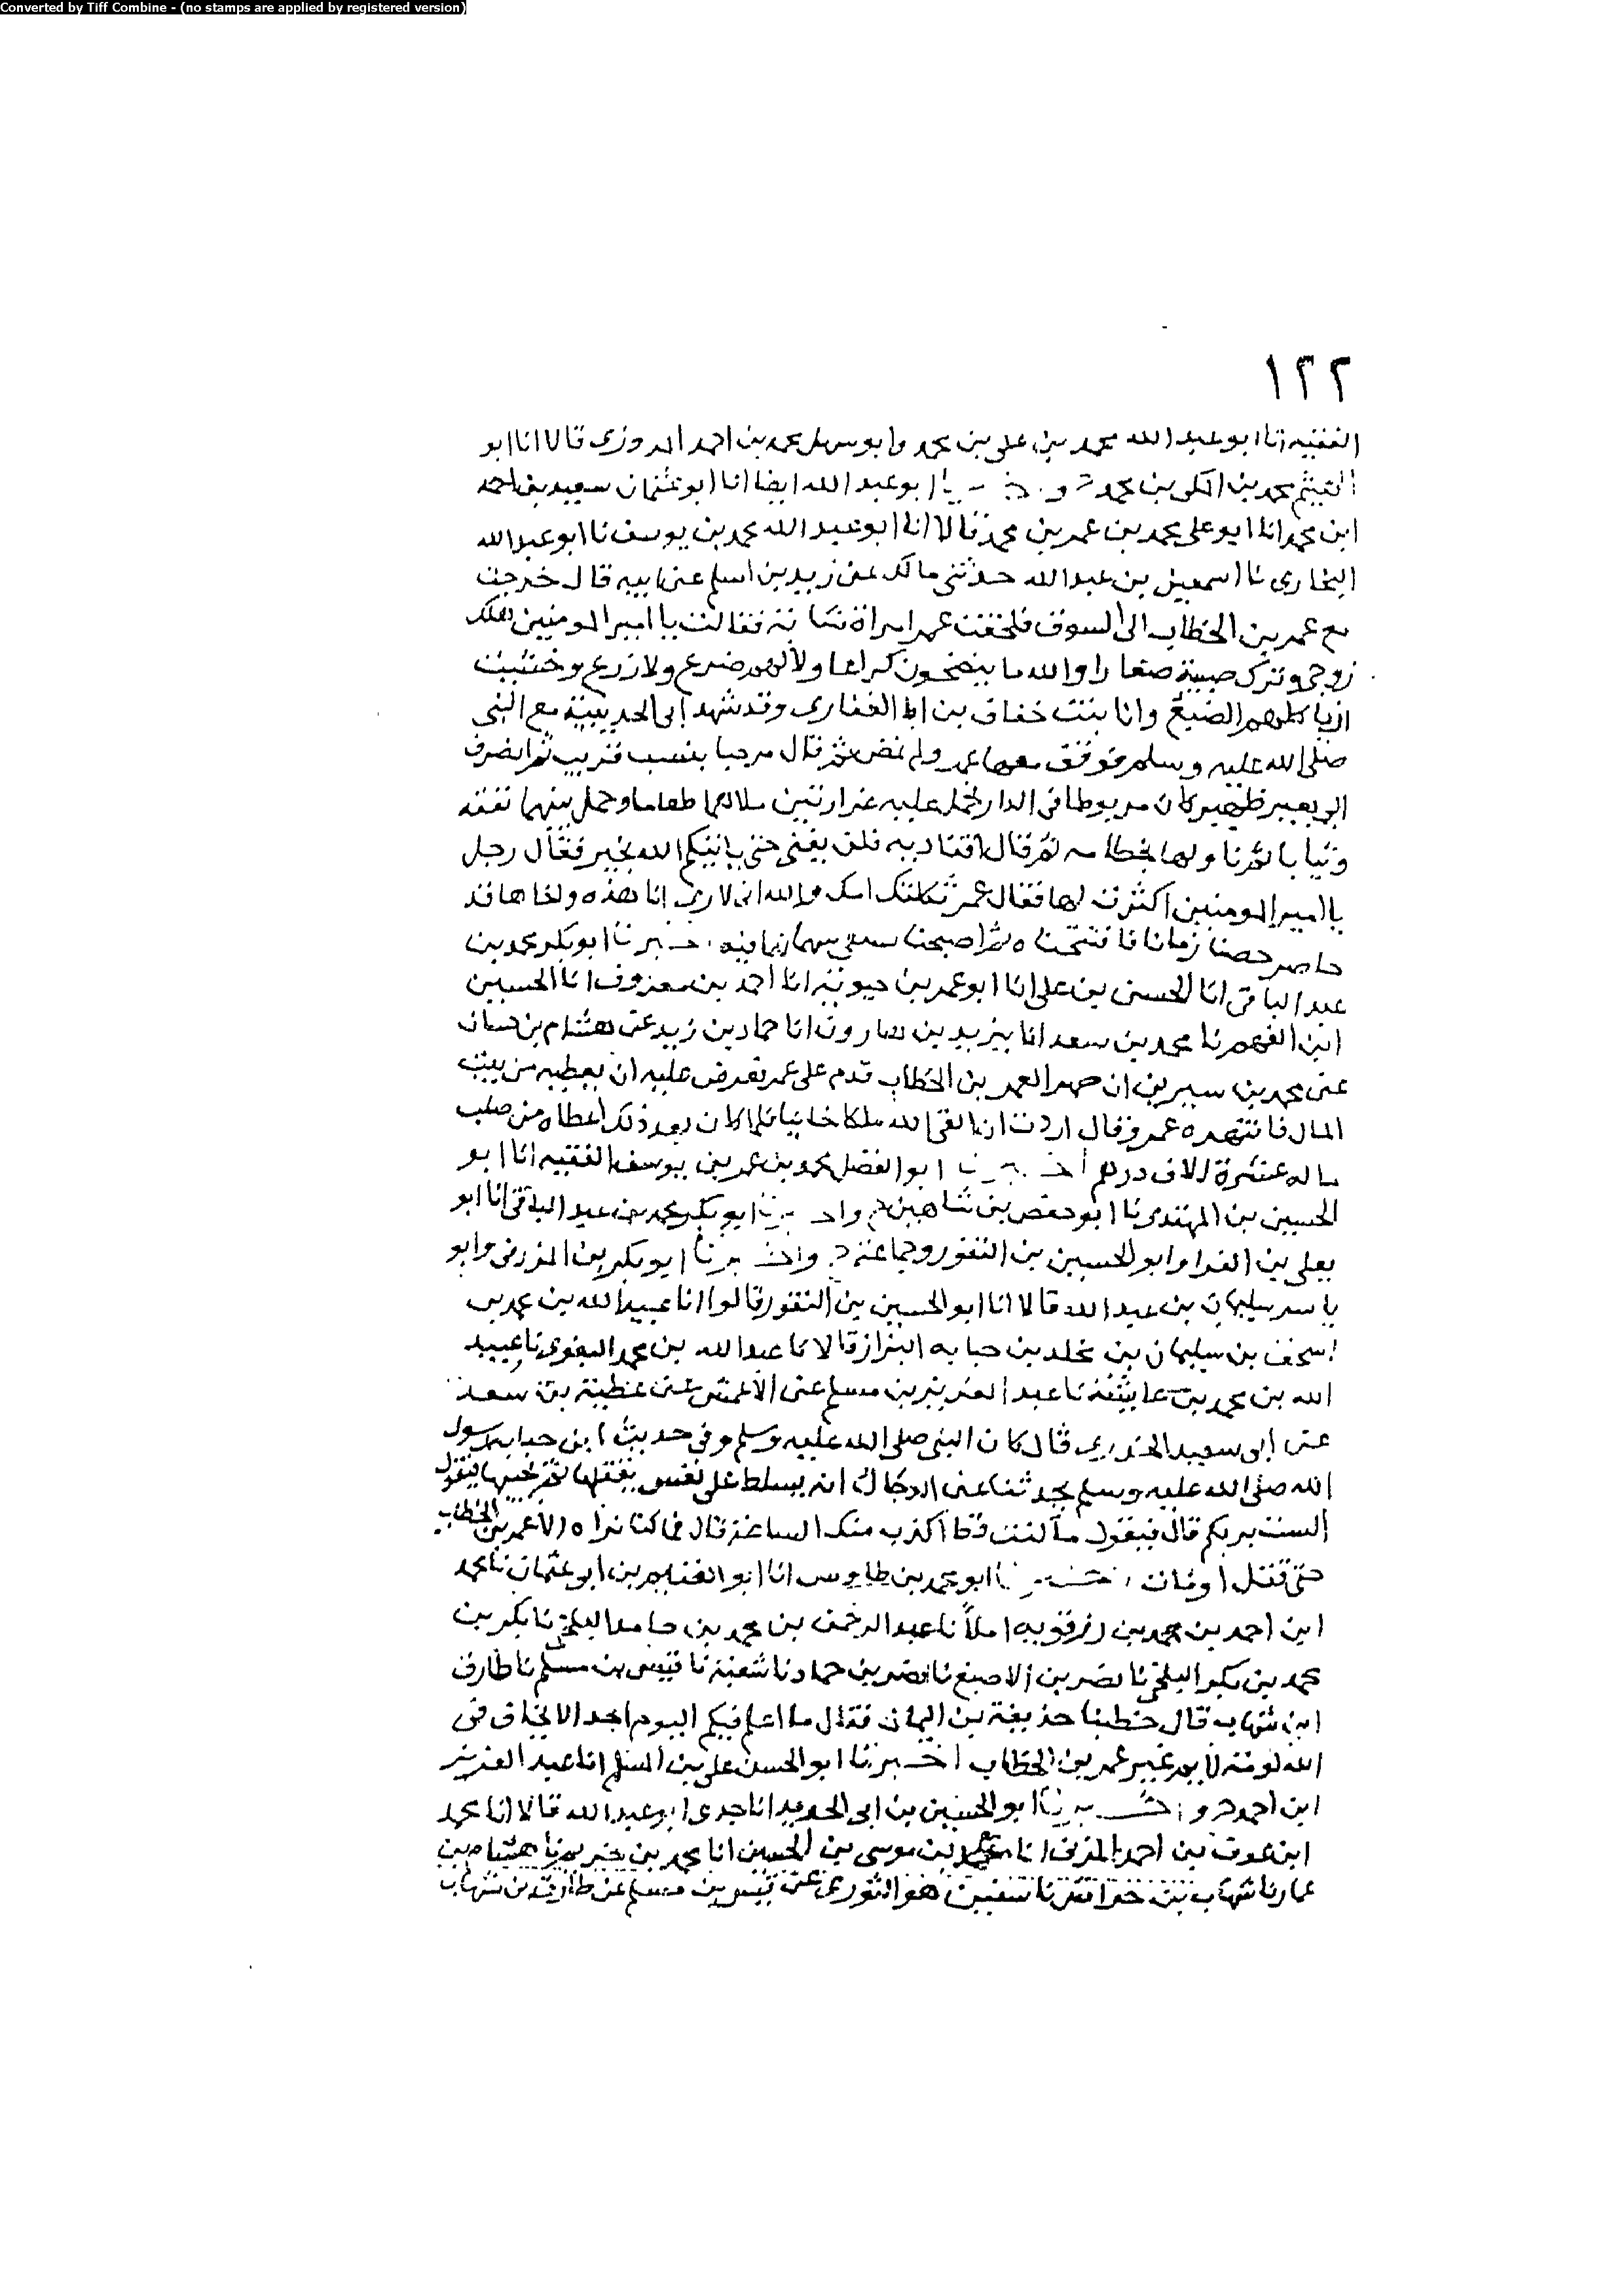 Converted by Tiff Combine - (no stamps are applied by registered version)
١٢٢
الفقيه انا ابو عبد الله محمد بن على بن محمد وابو سهل محمد بن احمد المروزى قالا انا ابو
الهيثم محمد بن المكى بن محمد ابو عبد الله ايضا انا ابو عثمان سعيد بن احمد
ابن محمد انا ابو على محمد بن عمر بن محمد قالا انا ابو عبد الله محمد بن يوسف نا ابو عبد الله
البخارى نا اسمعيل بن عبد الله حدثنى مالك عن زيد بن اسلم عن ابيه قال خرجت
مع عمر بن الخطاب الى السوق فلحقت عمر امراة شابة فقالت يا امير المومنين هلك
زوجى وترك صبية صغارا والله ما ينضجون كراعا ولا لهم ضرع ولا زرع وخشيت
ان ياكلهم الضبع وانا بنت خفاف بن ايما الغفارى وقد شهد ابى الحديبية مع النبى
صلى الله عليه وسلم فوقف معها عمر ولم يمض ثم قال مرحبا بنسب قريب ثم انصرف
الى بعير ظهير كان مربوطا فى الدار فحمل عليه غرارتين ملاهما طعاما وحمل بينهما نفقة
وثيابا ثم ناولها بخطامه ثم قال اقتاديه فلن يفنى حتى ياتيكم الله بخير فقال رجل
يا امير المومنين اكثرت لها فقال عمر ثكلتك امك والله انى لارى ابا هذه واخاها قد
حاصر حصنا زمانا فافتتحناه ثم اصبحنا نستقى سهمانهما فيه اخبرنا ابو بكر محمد بن
عبد الباقى انا الحسن بن على انا ابو عمر بن حيويه انا احمد بن معروف انا الحسين
ابن الفهم نا محمد بن سعد انا يزيد بن هارون انا حماد بن زيد عن هشام بن حسان
عن محمد بن سيرين ان صهرا لعمر بن الخطاب قدم على عمر فعرض عليه ان يعطيه من بيت
المال فانتهره عمر وقال اردت ان القى الله ملكا خاينا فلما كان بعد ذلك اعطاه من صلب
ماله عشرة الاف درهم اخبرنا ابو الفضل محمد بن عمر بن يوسف الفقيه انا ابو
الحسين بن المهتدى نا ابو حفص بن شاهين ح واخبرنا ابو بكر محمد بن عبد الباقى انا ابو
يعلى بن الفرا وابو الحسين بن النقور وجماعة ح واخبرنا ابو بكر بن المزرفى وابو
ياسر سليمان بن عبد الله قالا انا ابو الحسين بن النقور قالوا انا عبيد الله بن محمد بن
اسحق بن سليمان بن مخلد بن حبابه البزاز قالا نا عبد الله بن محمد البغوى نا عبيد
الله بن محمد بن عايشة نا عبد العزيز بن مسلم عن الاعمش عن عطية بن سعد
عن ابى سعيد الخدرى قال كان النبى صلى الله عليه وسلم وفى حديث ابن حبابه رسول
الله صلى الله عليه وسلم يحدثنا عن الدجال انه يسلط على نفس يقتلها ثم يحييها فيقول
الست بربكم قال فيقول ما كنت قط اكذب منك الساعة قال فما كنا نراه الا عمر بن الخطاب
حتى قتل او مات اخبرنا ابو محمد بن طاوس انا ابو الغنايم بن ابو عثمان نا محمد
ابن احمد بن محمد بن رزقويه املا نا عبد الرحمن بن محمد بن حامد البلخى نا بكر بن
محمد بن بكر البلخى نا نصر بن الاصبغ نا نصر بن حماد نا شعبة نا قيس بن مسلم نا طارق
ابن شهاب قال خطبنا حذيفة بن اليمان فقال ما اعلم فيكم اليوم احد الا يخاف فى
الله لومة لايم غير عمر بن الخطاب اخبرنا ابو الحسن على بن المسلم انا عبد العزيز
ابن احمد ح و اخبرنا ابو الحسين بن ابى الحديد انا جدى ابو عبد الله قالا انا محمد
ابن عوف بن احمد المزنى انا محمد بن موسى بن الحسين انا محمد بن خريم نا هشام بن
عمار نا شهاب بن خراش نا سفين هو الثورى عن قيس بن مسلم عن طارق بن شهاب